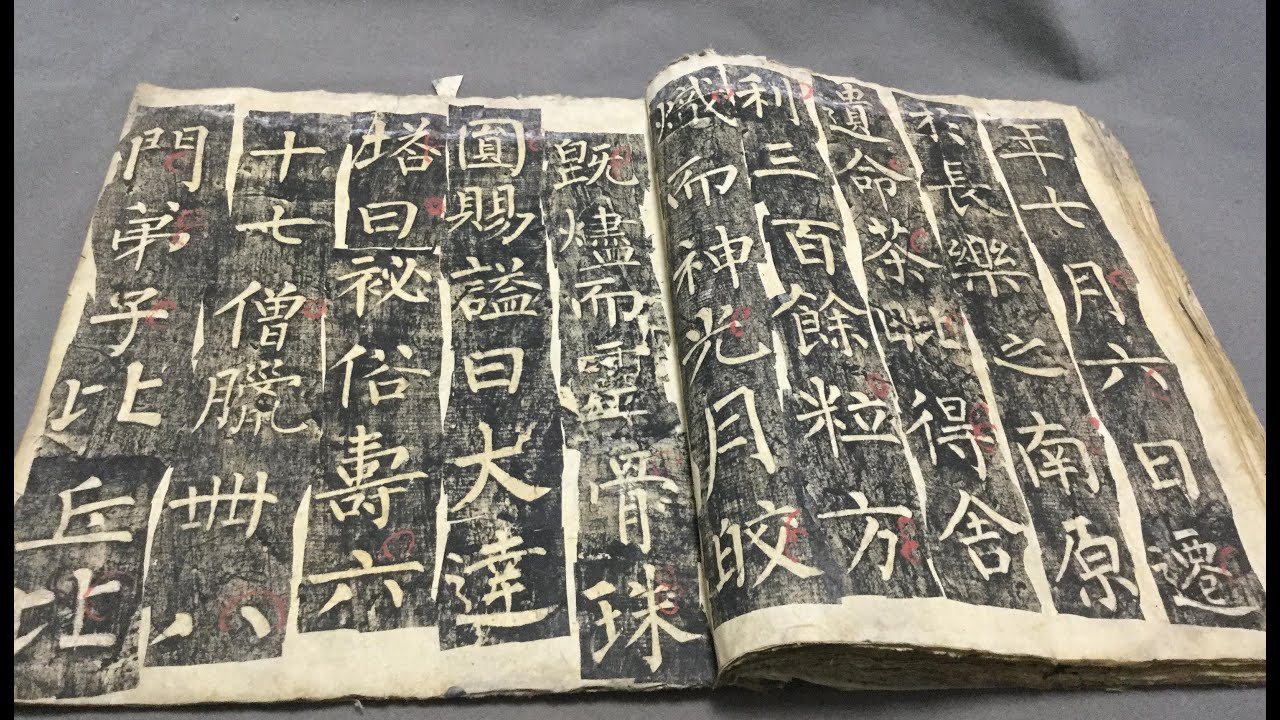 年七月六日遷
於長樂之南原
遺命茶毗得舍
利三百餘粒方
熾而神光月皎
既燼而靈骨珠
圓賜謚曰大達
塔曰祕俗壽六
十七僧臘卌八
門弟子比丘比